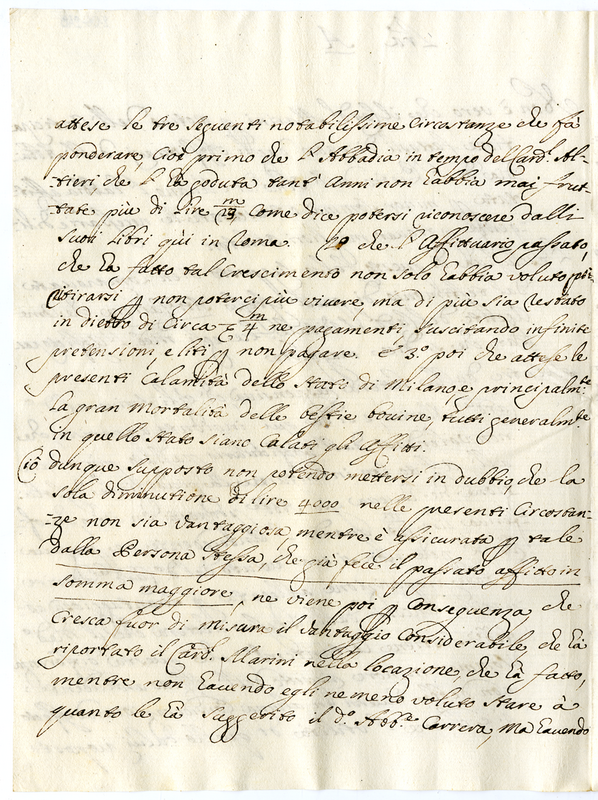 attese le tre seguenti notabilissime Circostanze che fà
ponderare, Cioè primo che l'Abbadia in tempo del Card.l Al-
-tieri, che l'hà goduta tant'Anni non habbia maj frut-
-tate più di lire m/19 Come dice potersi riconoscere dalli
suoi libri quì in Roma. 2º che l'Affittuario passato,
che hà fatto tal Crescimento non solo habbia voluto
ritirarsi p non poterci più vivere, ma di più sia restato
in dietro di Circa m/4 ne pagamenti suscitando infinite
pretensioni, e liti p non pagare. e 3.º poi che attese le
presenti Calamità dello Stato di Milano e principalm.te
la gran Mortalità delle bestie bovine, tutti generalm.te
in quello stato siano Calati gli affitti.
Ciò dunque supposto non potendo mettersi in dubbio, che la
sola diminutione di lire 4000 nelle presenti Circostan-
-ze non sia Vantaggiosa, mentre è assicurata p tale
dalla Persona stessa, che già fece il passato affitto in
somma maggiore, ne viene poi p Conseguenza, che
Cresca fuor di misura il Vantaggio Considerabile, che hà
riportato il Card.l Marini nella locazione, che hà fatto,
mentre non havendo egli ne meno voluto stare à
quanto le hà suggerito il d.º Abb.e Carrera, ma havendo